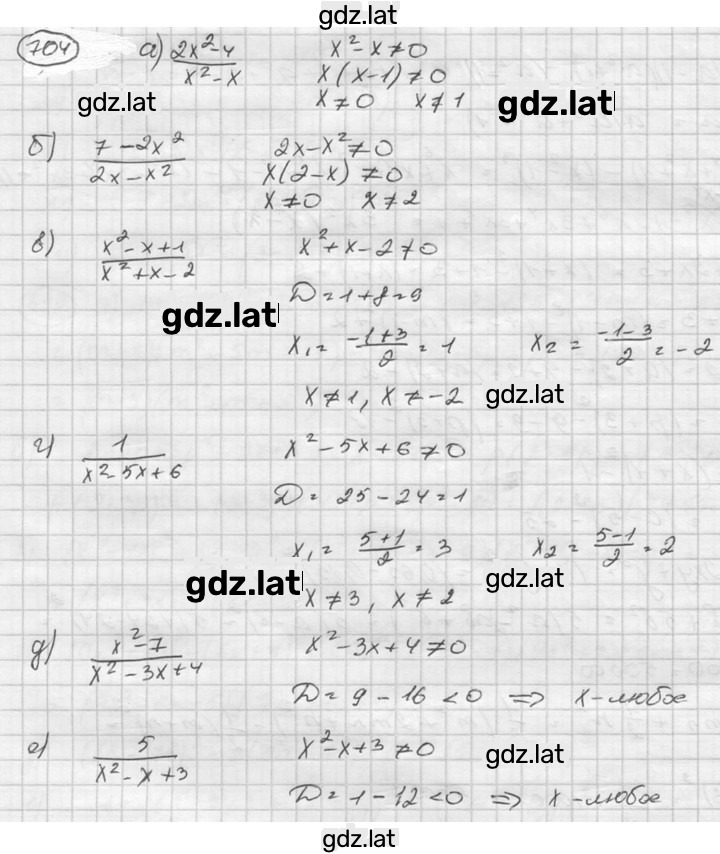 gdz.lat
704 а) (2x²-4)/(x²-x) x²-x≠0
x(x-1)≠0
gdz.lat x≠0 x≠1 gdz.lat
б) (7-2x²)/(2x-x²) 2x-x²≠0
x(2-x)≠0
x≠0 x≠2
в) (x²-x+1)/(x²+x-2) x²+x-2≠0
gdz.lat D=1+8=9
x₁=(-1+3)/2=1 x₂=(-1-3)/2=-2
x≠1, x≠-2 gdz.lat
г) 1/(x²-5x+6) x²-5x+6≠0
D=25-24=1
x₁=(5+1)/2=3 x₂=(5-1)/2=2
gdz.lat x≠3, x≠2 gdz.lat
д) (x²-7)/(x²-3x+4) x²-3x+4≠0
D=9-16<0 ⇒ x-любое
е) 5/(x²-x+3) x²-x+3≠0 gdz.lat
D=1-12<0 ⇒ x-любое
gdz.lat